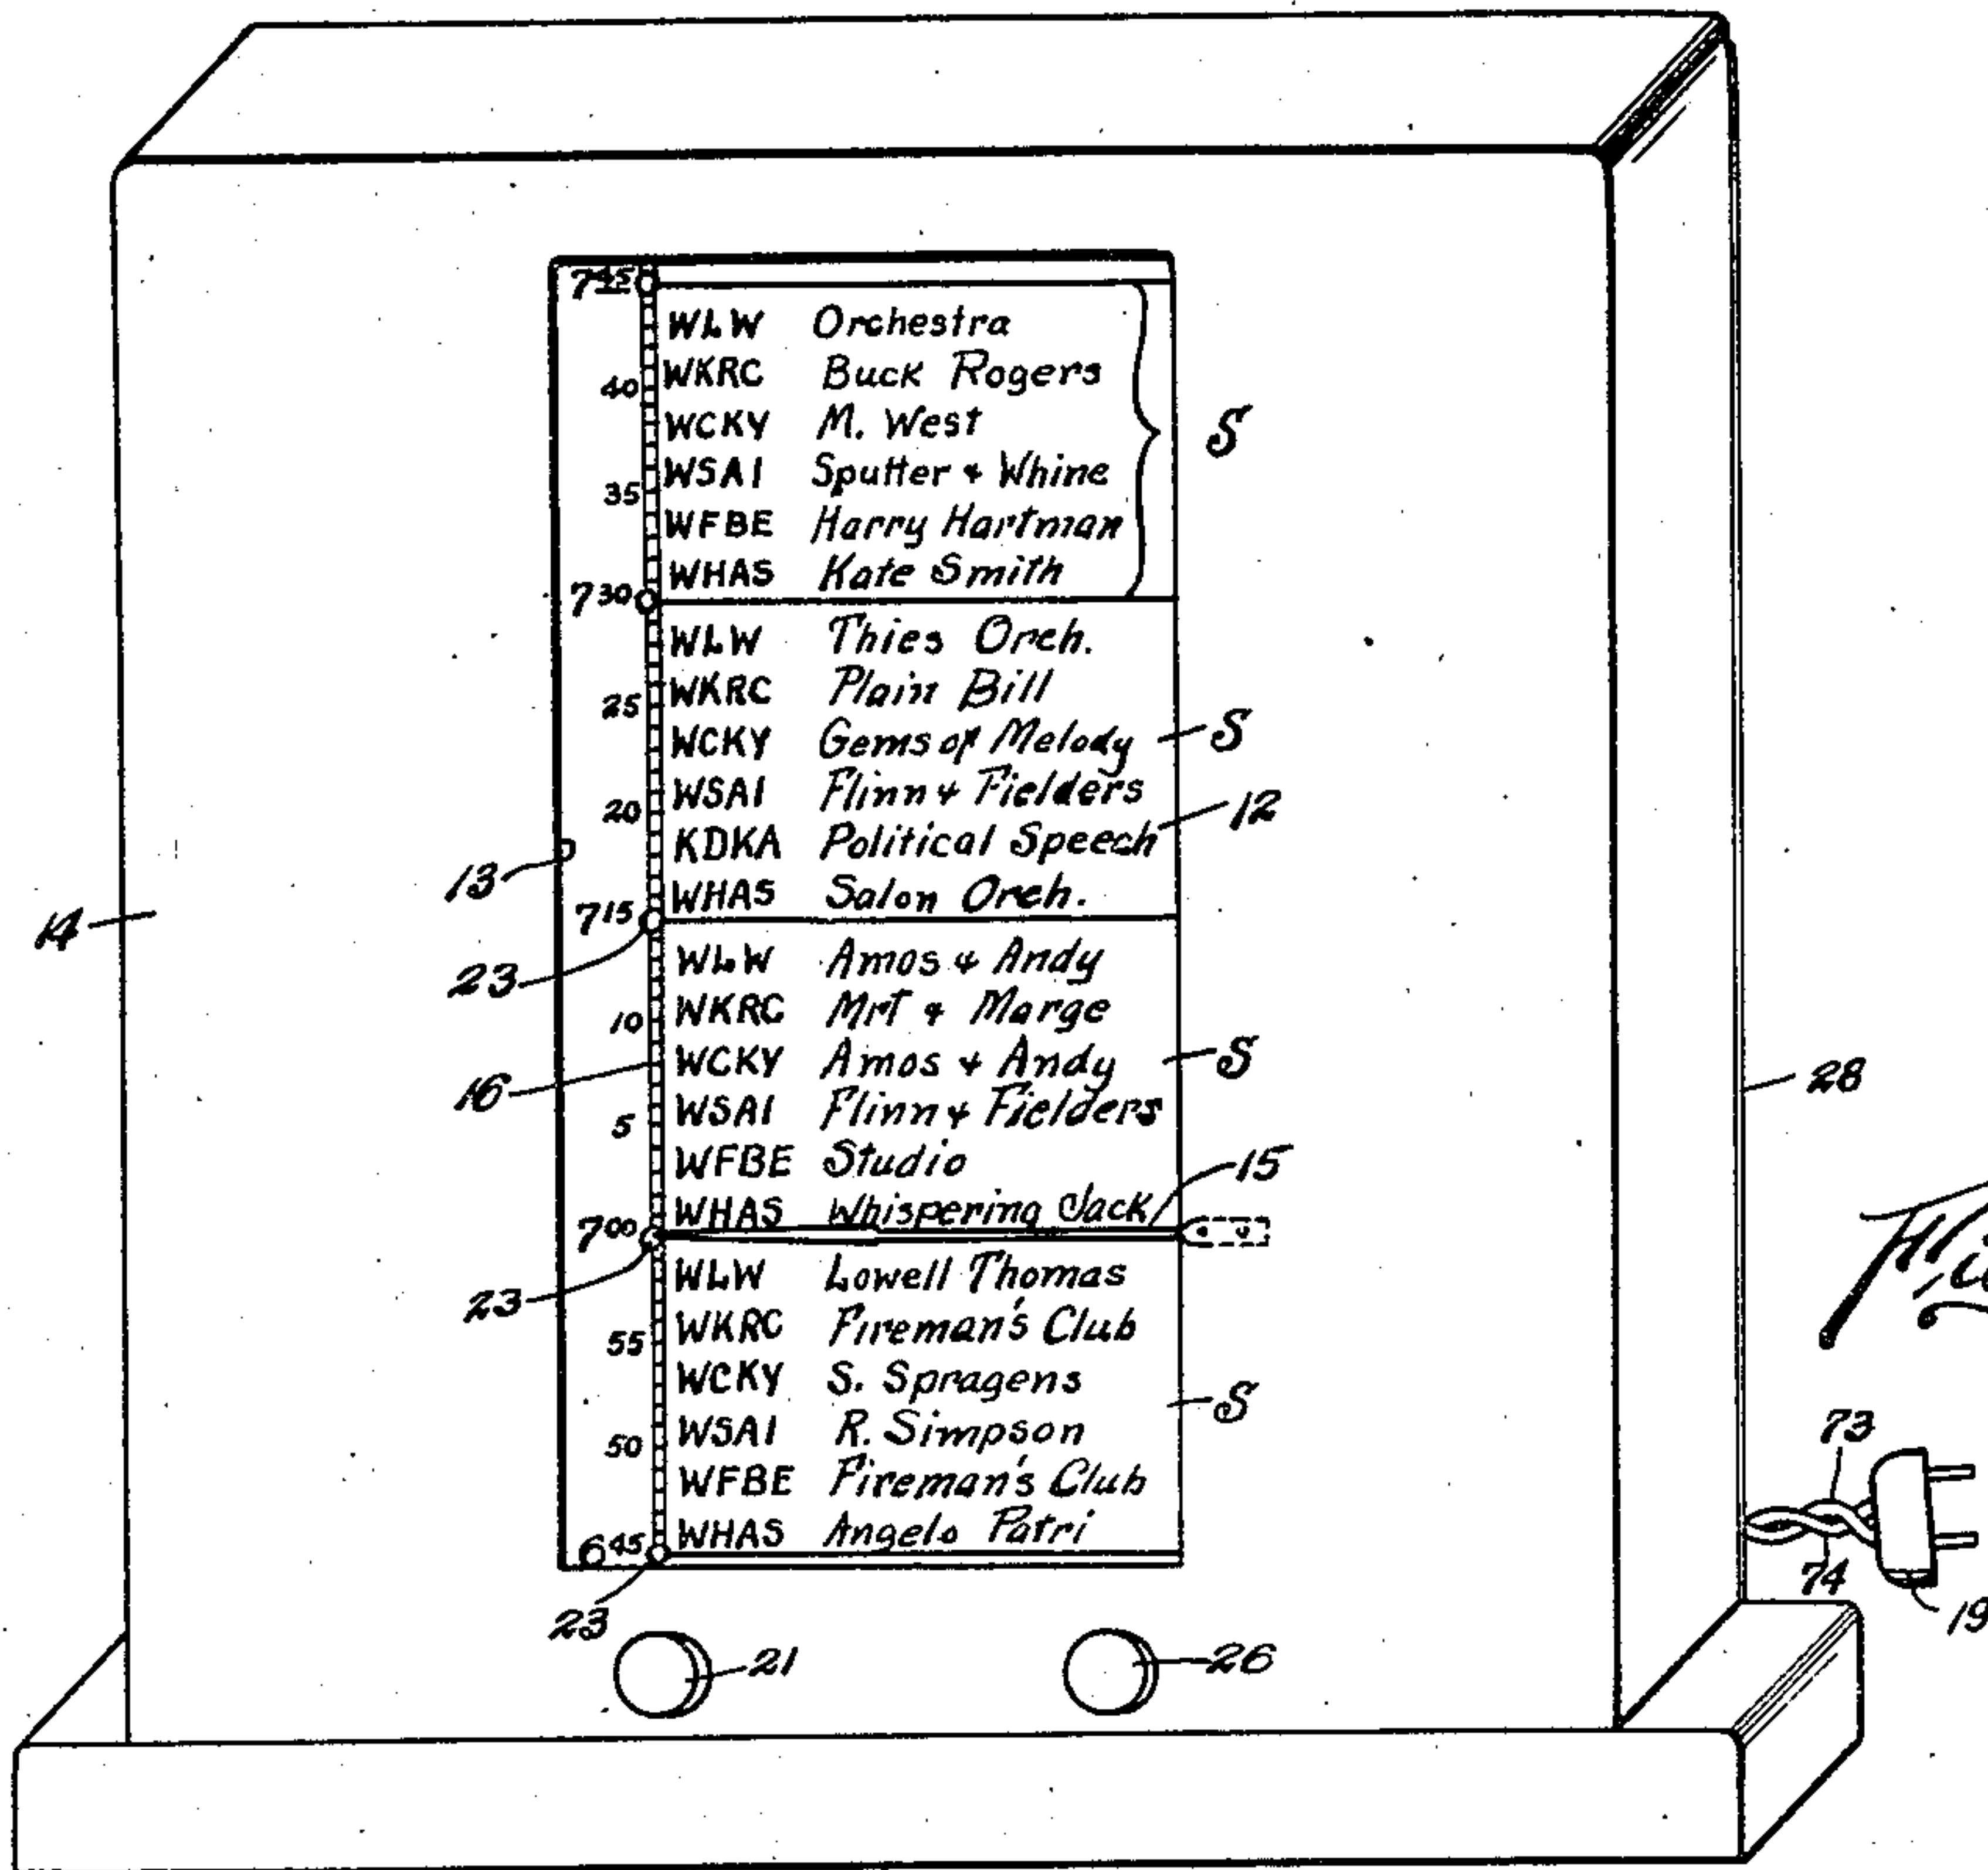 7 45
WLW Orchestra
40 WKRC Buck Rogers
WCKY M. West
S
35 WSAI Sputter & Whine
WFBE Harry Hartman
WHAS Kate Smith
7 30
WLW Thies Orch.
25 WKRC Plain Bill
WCKY Gems of Melody S
20 WSAI Flinn & Fielders 12
KDKA Political Speech
13
WHAS Salon Orch.
7 15
14
23
WLW Amos & Andy
10 WKRC Mrt & Marge
WCKY Amos & Andy S
16 28
5 WSAI Flinn & Fielders
WFBE Studio 15
WHAS Whispering Jack
7 00
23
WLW Lowell Thomas
55 WKRC Fireman's Club
WCKY S. Spragens S
50 WSAI R. Simpson 73
WFBE Fireman's Club
WHAS Angelo Patri
6 45
74
23 19
21 26